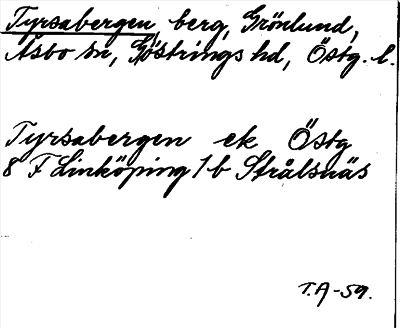 Tyrsabergen, berg, Grönlund,
Åsbo sn, Göstrings hd, Östg. l.
Tyrsabergen ek Östg
8 F Linköping 1 b Strålsnäs
T.A-59.